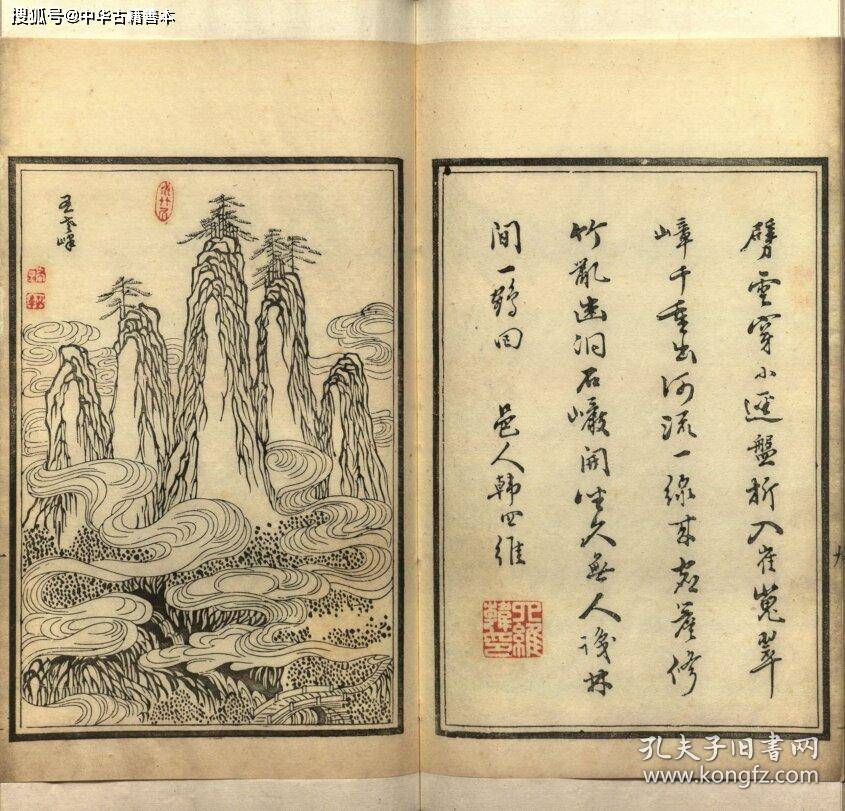 搜狐号@中华古籍善本
劈雲穿小逕盤折入崔嵬翠
嶂千重出河流一線來崖修
竹亂幽洞石巖開坐久無人識林
間一鶴回 邑人韓四維
四維韓印
五老峰
孔夫子旧书网
www.kongfz.com